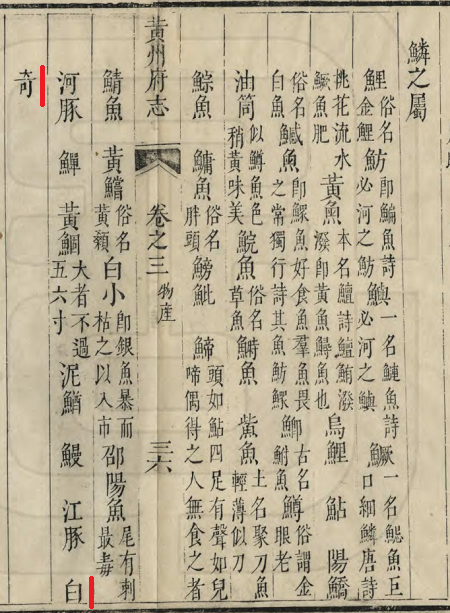 鱗之屬
鯉俗名金鯉魴即鯿魚詩必河之魴鱮一名鰱魚詩必河之鱮鱖一名鯢魚巨口細鱗唐詩
桃花流水鱖魚肥黃魚本名鱣詩鱣鮪潑潑即黃魚鱘魚也烏鯉鮎陽鱎
俗名白魚鰔魚即鰥魚好食魚羣魚畏之常獨行詩其魚魴鰥鯽古名鮒魚鱒俗謂金眼老
油筒似鱒魚色稍黃味美鯇魚俗名草魚鰣魚鮆魚土名聚刀魚輕薄似刀
鯮魚鱅魚俗名胖頭鰟魮䱱頭如鮎四足有聲如兒啼偶得之人無食之者
黃州府志 卷之三 物產 三六
鯖魚黃鱨俗名黃顙白小即銀魚暴而枯之以入市邵陽魚尾有刺最毒
河豚鱓黃鯝大者不過五六寸泥鰌鰻江豚白
奇